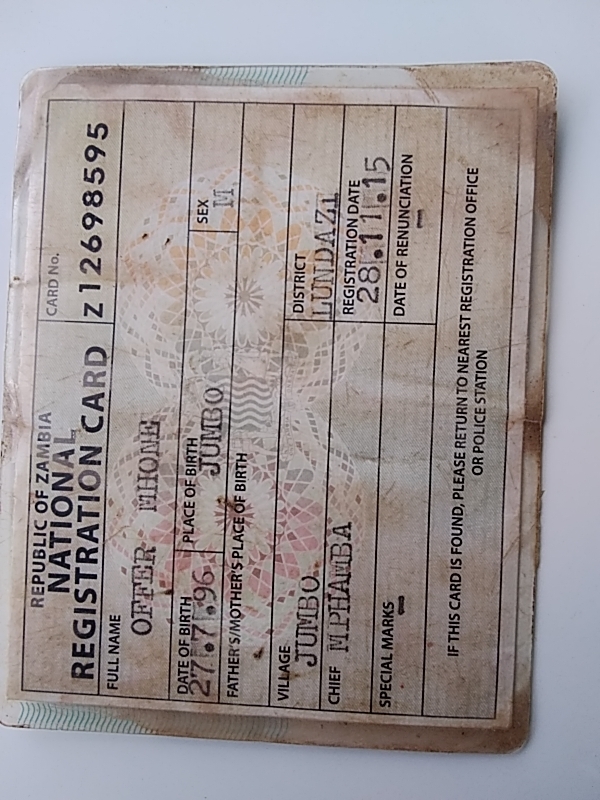 REPUBLIC OF ZAMBIA
NATIONAL
REGISTRATION CARD
CARD No.
Z12698595
FULL NAME
OFFER MHONE
DATE OF BIRTH
27.7.96
PLACE OF BIRTH
JUMBO
SEX
M
FATHER'S/MOTHER'S PLACE OF BIRTH
VILLAGE
JUMBO
DISTRICT
LUNDAZI
CHIEF
MPHAMBA
REGISTRATION DATE
28.11.15
SPECIAL MARKS
-
DATE OF RENUNCIATION
-
IF THIS CARD IS FOUND, PLEASE RETURN TO NEAREST REGISTRATION OFFICE
OR POLICE STATION